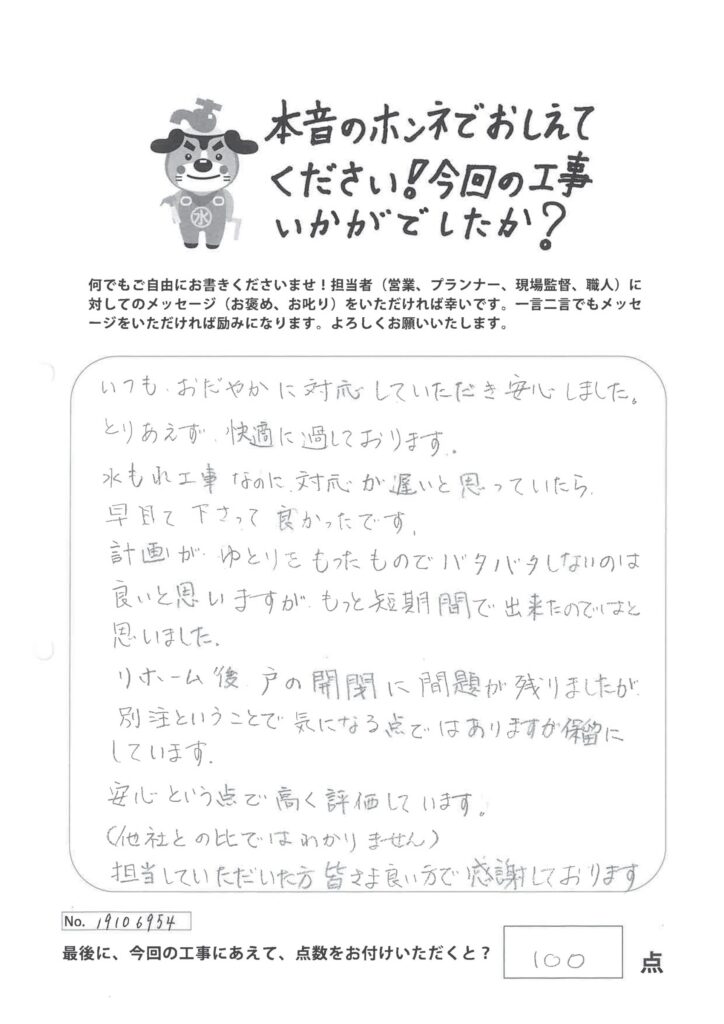 本音のホンネでおしえて
ください!今回の工事
いかがでしたか?
水
何でもご自由にお書きくださいませ!担当者(営業、プランナー、現場監督、職人)に
対してのメッセージ(お褒め、お叱り)をいただければ幸いです。一言二言でもメッセ
ージをいただければ励みになります。よろしくお願いいたします。
いつも、おだやかに対応していただき安心しました。
とりあえず、快適に過しております。
水もれ工事なのに、対応が遅いと思っていたら、
早目て下さって良かったです。
計画が、ゆとりをもったものでバタバタしないのは
良いと思いますが、もっと短期間で出来たのではと
思いました。
リホーム後、戸の開閉に問題が残りましたが、
別注ということで気になる点ではありますが保留に
しています。
安心という点で高く評価しています。
(他社との比ではわかりません)
担当していただいた方皆さま良い方で感謝しております
No. 19106954
最後に、今回の工事にあえて、点数をお付けいただくと?
100
点